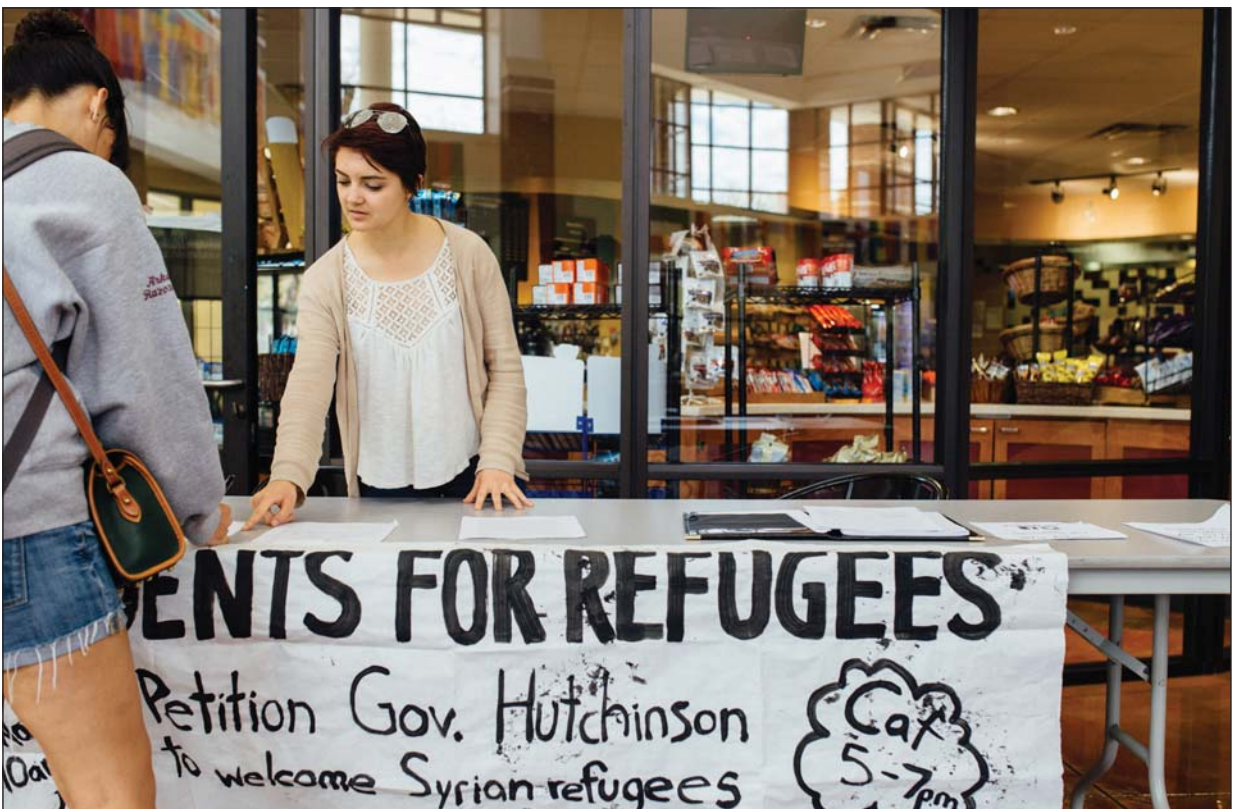 ENTS FOR REFUGEES
Petition Gov. Hutchinson
to welcome Syrian refugees
Caf
5-7
pm